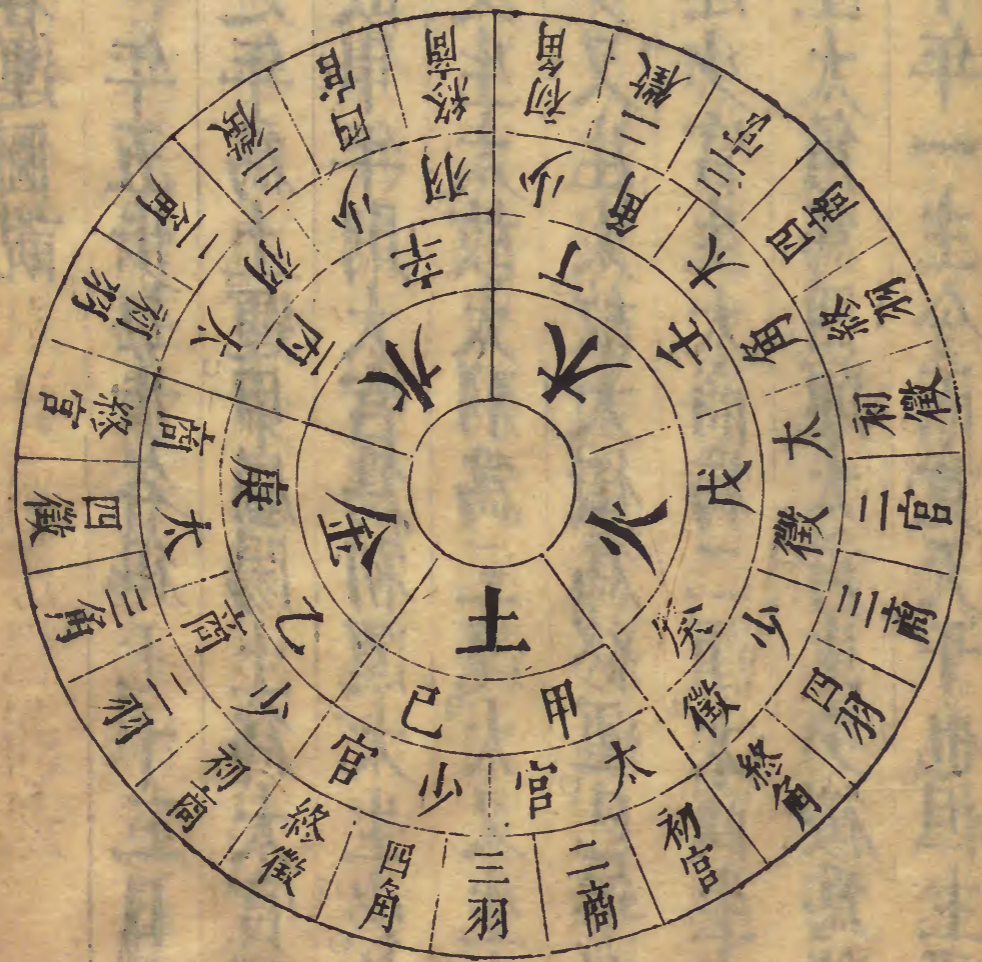 木
火
土
金
水
丁
壬
戊
癸
甲
己
乙
庚
丙
辛
少角
太角
太徵
少徵
太宮
少宮
少商
太商
太羽
少羽
初角
二徵
三宮
四商
終羽
初徵
二宮
三商
四羽
終角
初宮
二商
三羽
四角
終徵
初商
二羽
三角
四徵
終宮
初羽
二角
三徵
四宮
終商